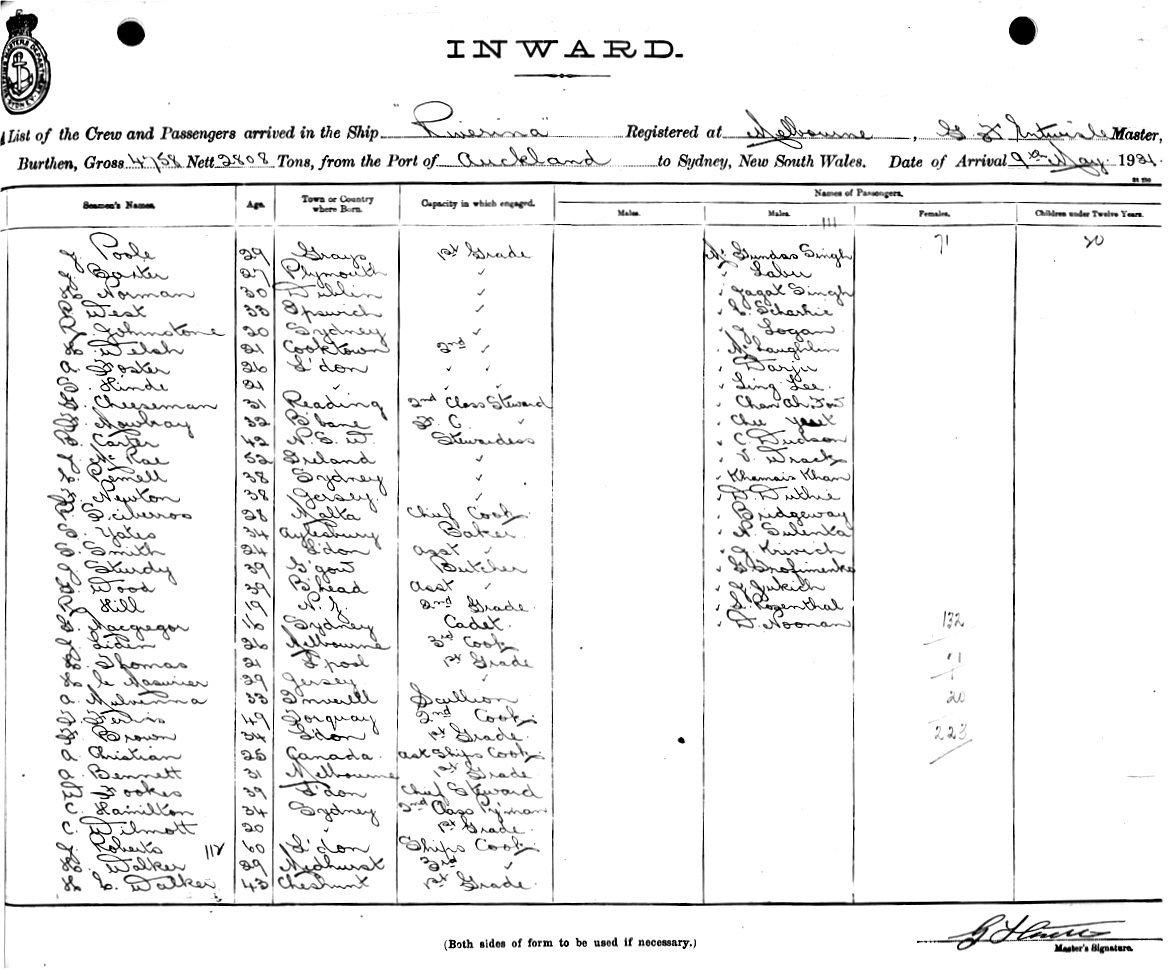 INWARD.
List of the Crew and Passengers arrived in the Ship "Riverina" Registered at Melbourne, G Entwisle Master,
Burthen, Gross 4758 Nett 2808 Tons, from the Port of Auckland to Sydney, New South Wales. Date of Arrival 9th May 1921.
Seamen's Names. Age. Town or Country where Born. Capacity in which engaged. Names of Passengers.
Males. Males. Females. Children under Twelve Years.
111
Poole 29 Grays 1st Grade Gundas Singh 71 20
Baxter 27 Plymouth " Labu
Norman 30 Dublin " Jagat Singh
West 33 Ipswich " Scharkie
Johnstone 20 Sydney " J Logan
Welsh 21 Cooktown 2nd " McLaughlin
Foster 26 L'don " " Darju
Hinde 21 " " Ling Lee
Cheeseman 31 Reading 2nd Class Steward Chan Ah
Mowbray 32 B'bane F. C. " Chee
Carter 42 N.S.W. Stewardess C. Dudson
McRae 52 Ireland " Tracy
Pemell 38 Sydney " Khamais Khan
Newton 38 Jersey "  Duthie
Sciberros 28 Malta Chief Cook Bridgeway
Yates 34 Aylesbury Baker Sulenta
Smith 24 L'don Asst " Krivich
Sturdy 39 G'gow Butcher G Trofimenko
Wood 39 B'head Asst " Jukich
Hill 19 N.Z. 2nd Grade Rosenthal
Macgregor 16 Sydney Cadet D. Noonan 132
Liden 26 Melbourne 3rd Cook
Thomas 21 L'pool 1st Grade 71
Le Masurier 29 Jersey "
A. Mulvenna 33 Inverell Scullion 20
Perkins 49 Torquay 2nd Cook
Brown 34 L'don 1st Grade 223
A Christian 25 Canada Asst Ships Cook
A Bennett 31 Melbourne 1st Grade
Fookes 39 L'don Chief Steward
C. Hamilton 34 Sydney 2nd Class P'yman
C. Wilmott 20 " 1st Grade
J. Roberts 112 60 L'don Ships Cook
Walker 29 Medhurst 3rd "
Walker 43 Cheshunt 1st Grade
(Both sides of form to be used if necessary.)
Master's Signature.